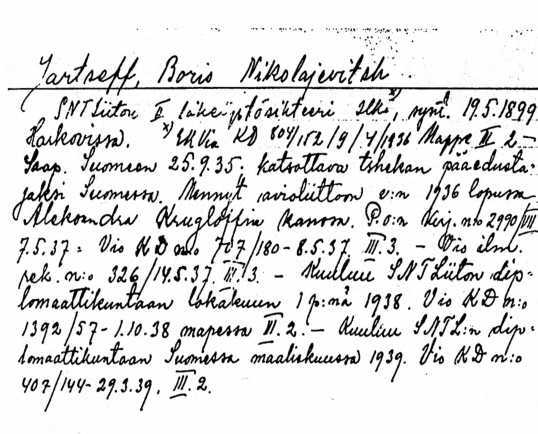 Jartseff, Boris Nikolajevitsh
SNTLiiton II lähetystösihteeri x), synt. 19.5.1899
Harkovissa. x) EK Via KD 804/152/9/4/1936 Mappe II 2 —
Saap. Suomeen 25.9.35. katsottava tshekan pääedusta-
jaksi Suomessa. Mennyt avioliittoon v:n 1936 lopussa
Aleksandra Krugloffin kanssa. P.o:n kirj. n:o 2990/VIII
7.5.37. Vis KD n:o 707/180 - 8.5.37 III.3. — Vis ilm.
rek. n:o 326/14.5.37. IV.3. — Kuuluu SNTLiiton dip-
lomaattikuntaan lokakuun 1 p:nä 1938. Vis KD n:o
1392/57 - 1.10.38 mapessa III.2. — Kuuluu SNTL:n dip-
lomaattikuntaan Suomessa maaliskuussa 1939. Vis KD n:o
407/144 - 29.3.39. III.2.